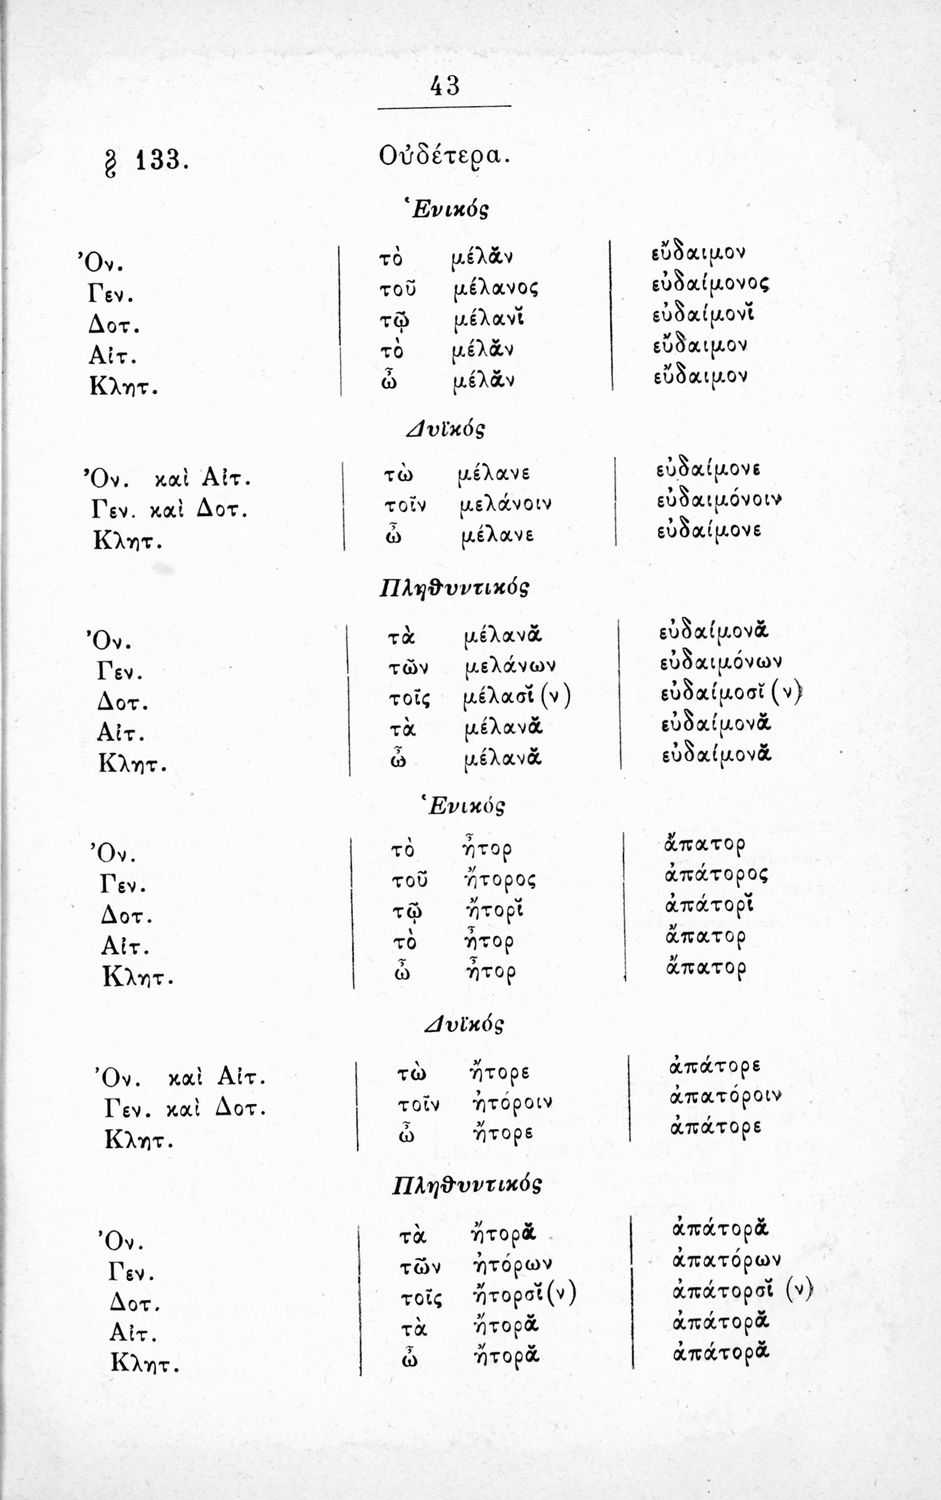 43
§ 133. Οὐδέτερα.
Ἑνικός
Ὀν. τὸ μέλᾰν εὔδαιμον
Γεν. τοῦ μέλανος εὐδαίμονος
Δοτ. τῷ μέλανῐ εὐδαίμονῐ
Αἰτ. τὸ μέλᾰν εὔδαιμον
Κλητ. ὦ μέλᾰν εὔδαιμον
Δυϊκός
Ὀν. καὶ Αἰτ. τὼ μέλανε εὐδαίμονε
Γεν. καὶ Δοτ. τοῖν μελάνοιν εὐδαιμόνοιν
Κλητ. ὦ μέλανε εὐδαίμονε
Πληθυντικός
Ὀν. τὰ μέλανᾰ εὐδαίμονᾰ
Γεν. τῶν μελάνων εὐδαιμόνων
Δοτ. τοῖς μέλασῐ (ν) εὐδαίμοσῐ (ν)
Αἰτ. τὰ μέλανᾰ εὐδαίμονᾰ
Κλητ. ὦ μέλανᾰ εὐδαίμονᾰ
Ἑνικός
Ὀν. τὸ ἦτορ ἄπατορ
Γεν. τοῦ ἤτορος ἀπάτορος
Δοτ. τῷ ἤτορῐ ἀπάτορῐ
Αἰτ. τὸ ἦτορ ἄπατορ
Κλητ. ὦ ἦτορ ἄπατορ
Δυϊκός
Ὀν. καὶ Αἰτ. τὼ ἤτορε ἀπάτορε
Γεν. καὶ Δοτ. τοῖν ἠτόροιν ἀπατόροιν
Κλητ. ὦ ἤτορε ἀπάτορε
Πληθυντικός
Ὀν. τὰ ἤτορᾰ ἀπάτορᾰ
Γεν. τῶν ἠτόρων ἀπατόρων
Δοτ. τοῖς ἤτορσῐ (ν) ἀπάτορσῐ (ν)
Αἰτ. τὰ ἤτορᾰ ἀπάτορᾰ
Κλητ. ὦ ἤτορᾰ ἀπάτορᾰ